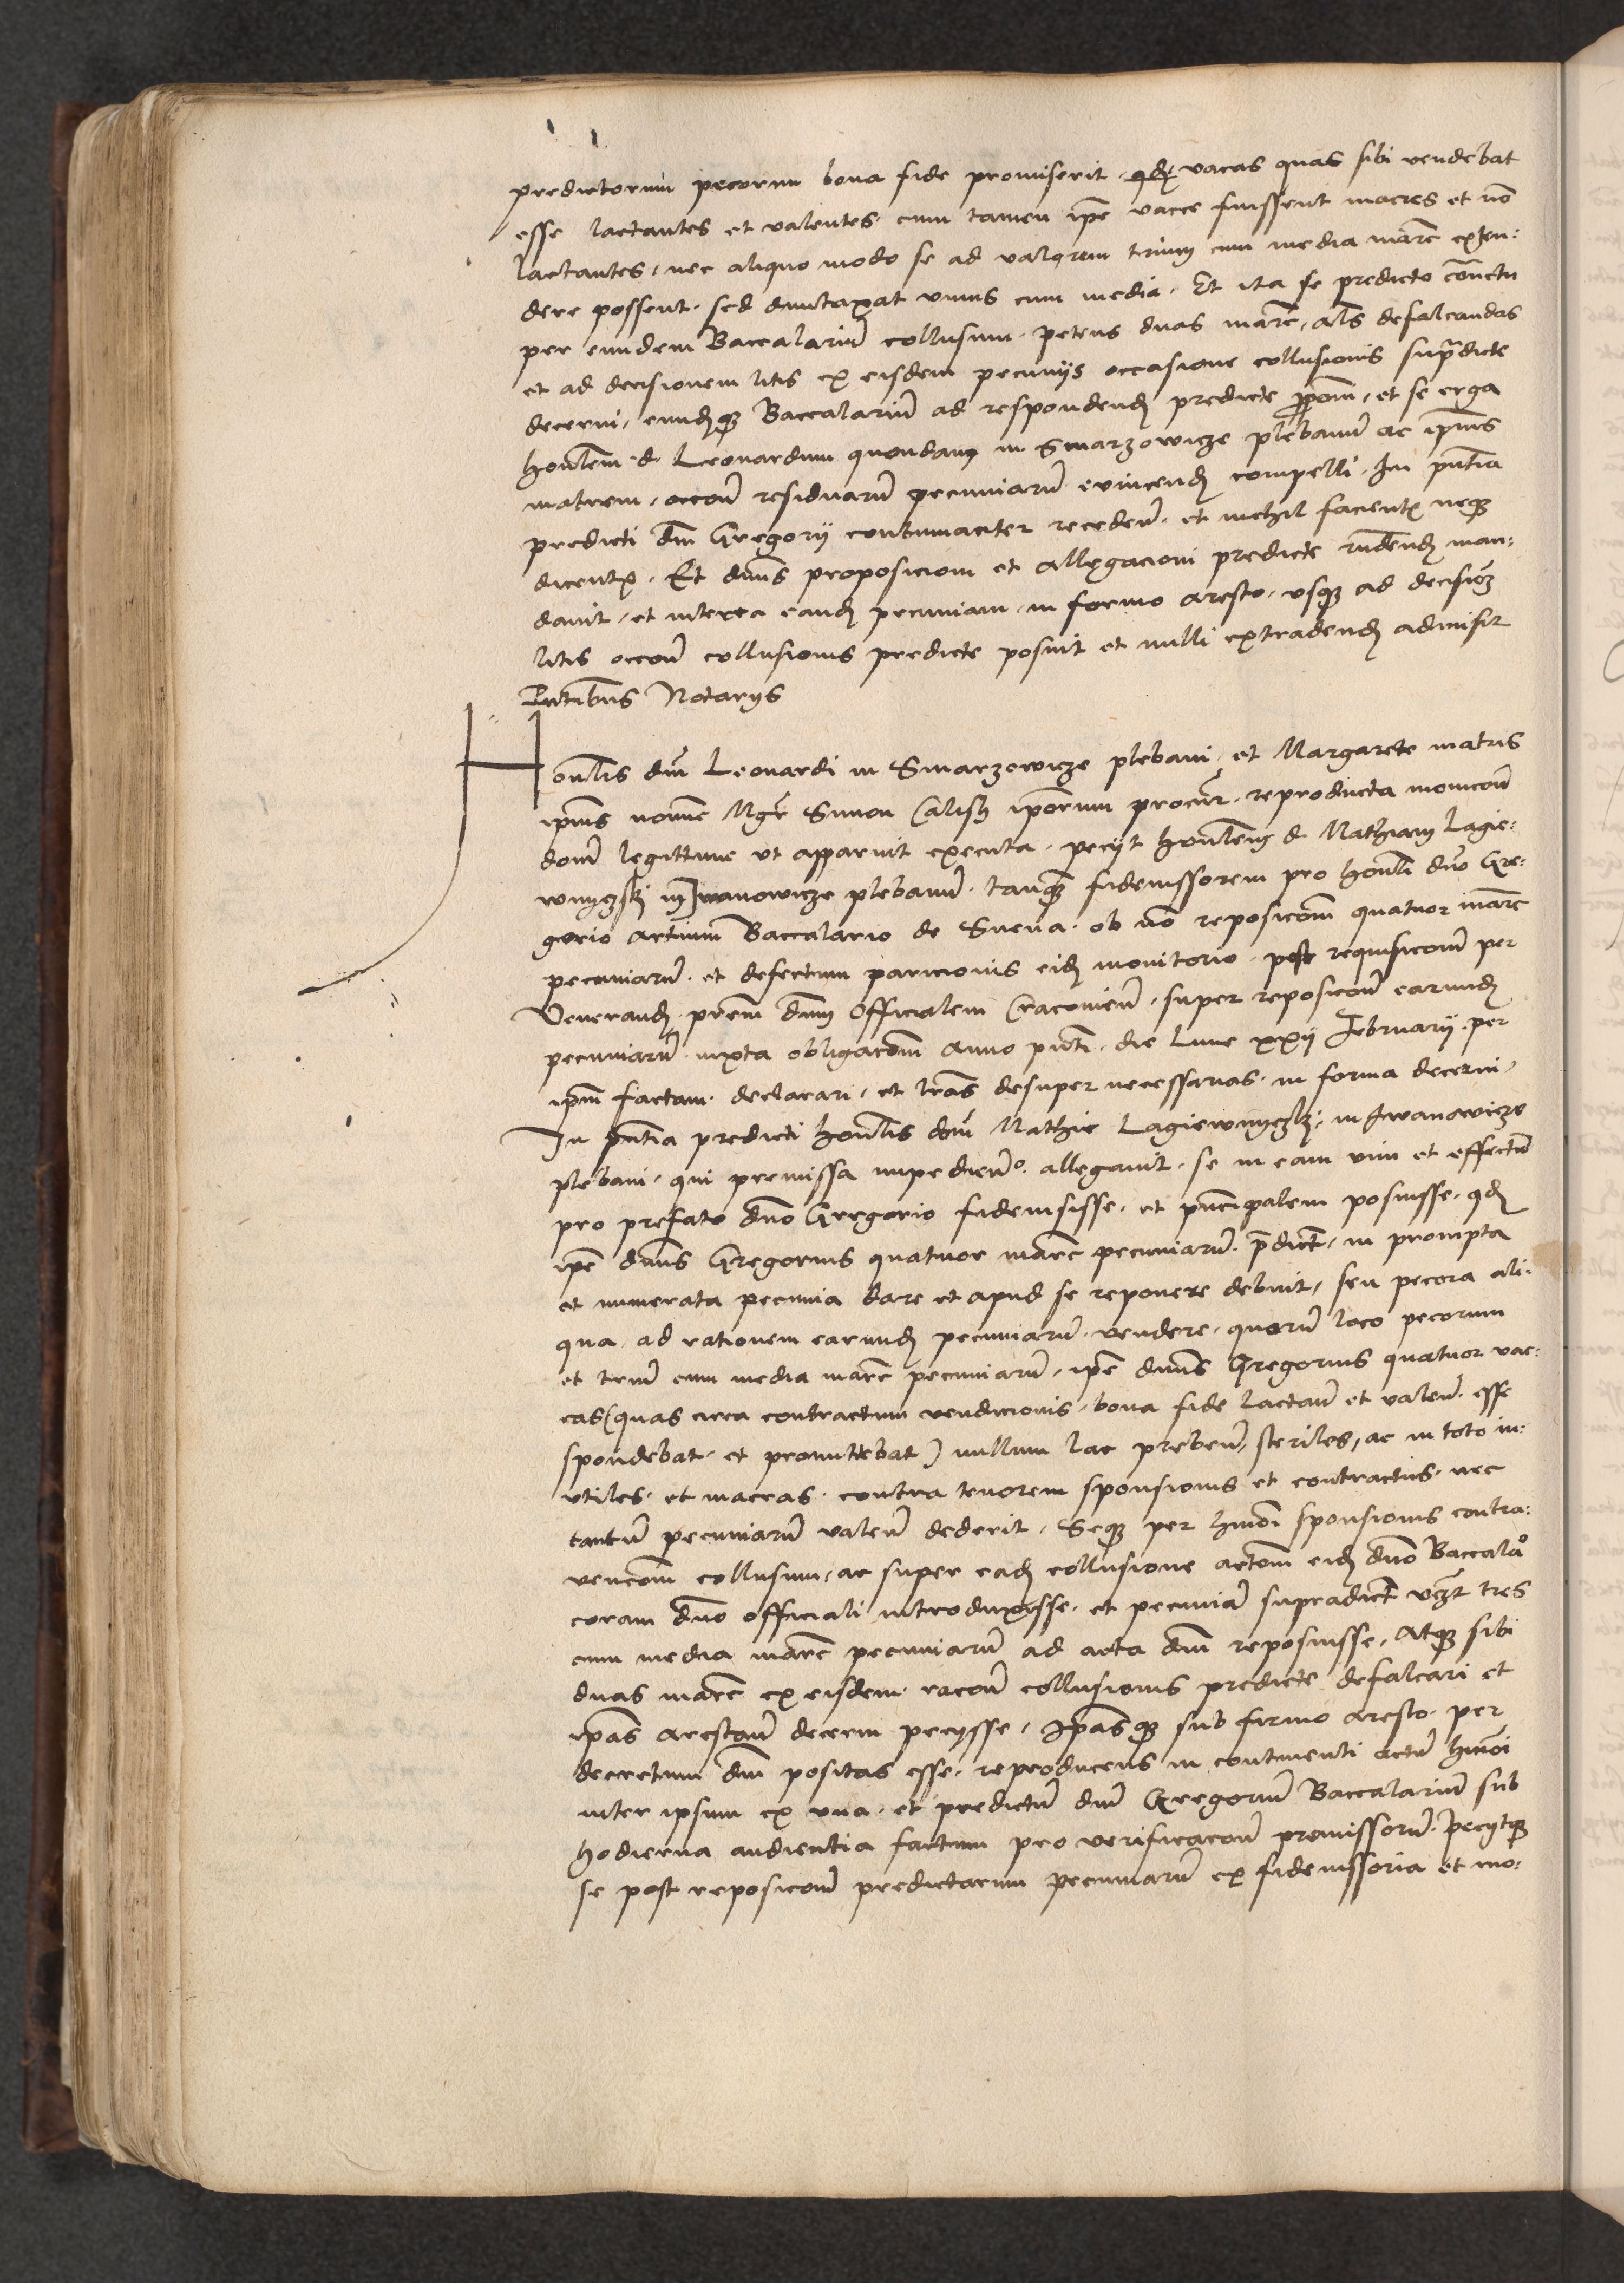 predictorum pecorum bona fide promiserit · qd vacas quas sibi vendebat
esse lactantes et valentes · cum tamen ipē vacce fuissent macres et nō
lactantes, nec aliquo modo se ad valorem trium cum media marc̄ exten:
dere possent · sed duntaxat unius cum media · Et ita se predicto cōntctu
per eundem Baccalariū collusum · petens duas marc̄, als defalcandas
et ad decisionem litis ex eisdem pecunijs occasione collusionis supradicte
decerni, eundqꝫ Baccalariū ad respondend predicte ꝓpoōm, et se erga
honlem · d · Leonardum quondam in Smarzowicze plebanū ac ipīus
matrem, occōne residuarū pecuniarū evincend compelli · In pn̄tia
predicti dn̄i Gregorij contumaciter receden̄ · et nichil facient neqꝫ
dicent · Et dn̄us proposicioni et allegacioni predicte rn̄dend man:
davit, et interea eand pecuniam, in formo aresto, usqꝫ ad decisiōꝫ
litis occōne collusionis predicte posuit et nulli extradend admisit
Pn̄tibus Notarijs
Honlis dn̄i Leonardi in Smarzowicze plebani, et Margarete matris
ipīus nomine Mgr̄ Simon Calisz ipōrum procur̄ · reproducta monicōne
dn̄i legittime ut apparuit executa · pecijt honlem d Mathiam Lagie:
wnyczky in Iwanowicze plebanū · tanqꝫ fideiussorem pro honli dn̄o Gre:
gorio artium Baccalario de Suena · ob nō reposicōm quatuor marc̄
pecuniarū · et defectum paricionis eid monitorio · post requisicōnē per
Venerand · prēm dn̄m Officialem Cracovien̄, super reposicōne earund
pecuniarū · iuxta obligacōm anno pn̄ti · die Lune xxij Februarij · per
ipm̄ factam · declarari, et lrās desuper necessarias · in forma decerni,
In pn̄tia predicti honlis dn̄i Mathie Lagiewnyczky · in Iwanowicze
plebani · qui premissa impediendo · allegavit · se in eam vim et effectū
pro prefato dn̄o Gregorio fideiussisse, et pn̄cipalem posuisse · qd
ipē dn̄us Gregorius quatuor marc̄ pecuniarū · p̄dict, in prompta
et numerata pecunia dare et apud se reponere debuit, seu pecora ali:
qua · ad rationem earund pecuniarū · vendere · quorū loco pecorum
et triū cum media marc̄ pecuniarū, ipē dn̄us Gregorius quatuor vac:
cas (quas circa contractum vendicionis, bona fide lactan̄ et valen̄ · esse
spondebat · et promittebat) nullum lac preben̄, steriles, ac in toto in:
utiles · et macras · contra tenorem sponsionis et contractus · nec
tantū pecuniarū valen̄ dederit, Seqꝫ per hmōi sponsionis contra:
vencōm collusum, ac super ead collusione actōm eid dn̄o Baccalro
coram dn̄o officiali introduxisse · et pecuniā supradict vꝫt tres
cum media marc̄ pecuniarū ad acta dn̄i reposuisse, Atqꝫ sibi
duas marc̄ ex eisdem · racōne collusionis predicte defalcari et
ipās arestan̄ decerni pecijsse, Ipāsqꝫ sub firmo aresto · per
decretum dn̄i positas esse, reproducens in continenti actū hmōi
inter ipsum ex una, et predictū dn̄m Gregoriū Baccalariū sub
hodierna audientia factum pro verificacōne premissorū · Pecijtqꝫ
se post reposicōm predictarum pecuniarū ex fideiussoria et mo: